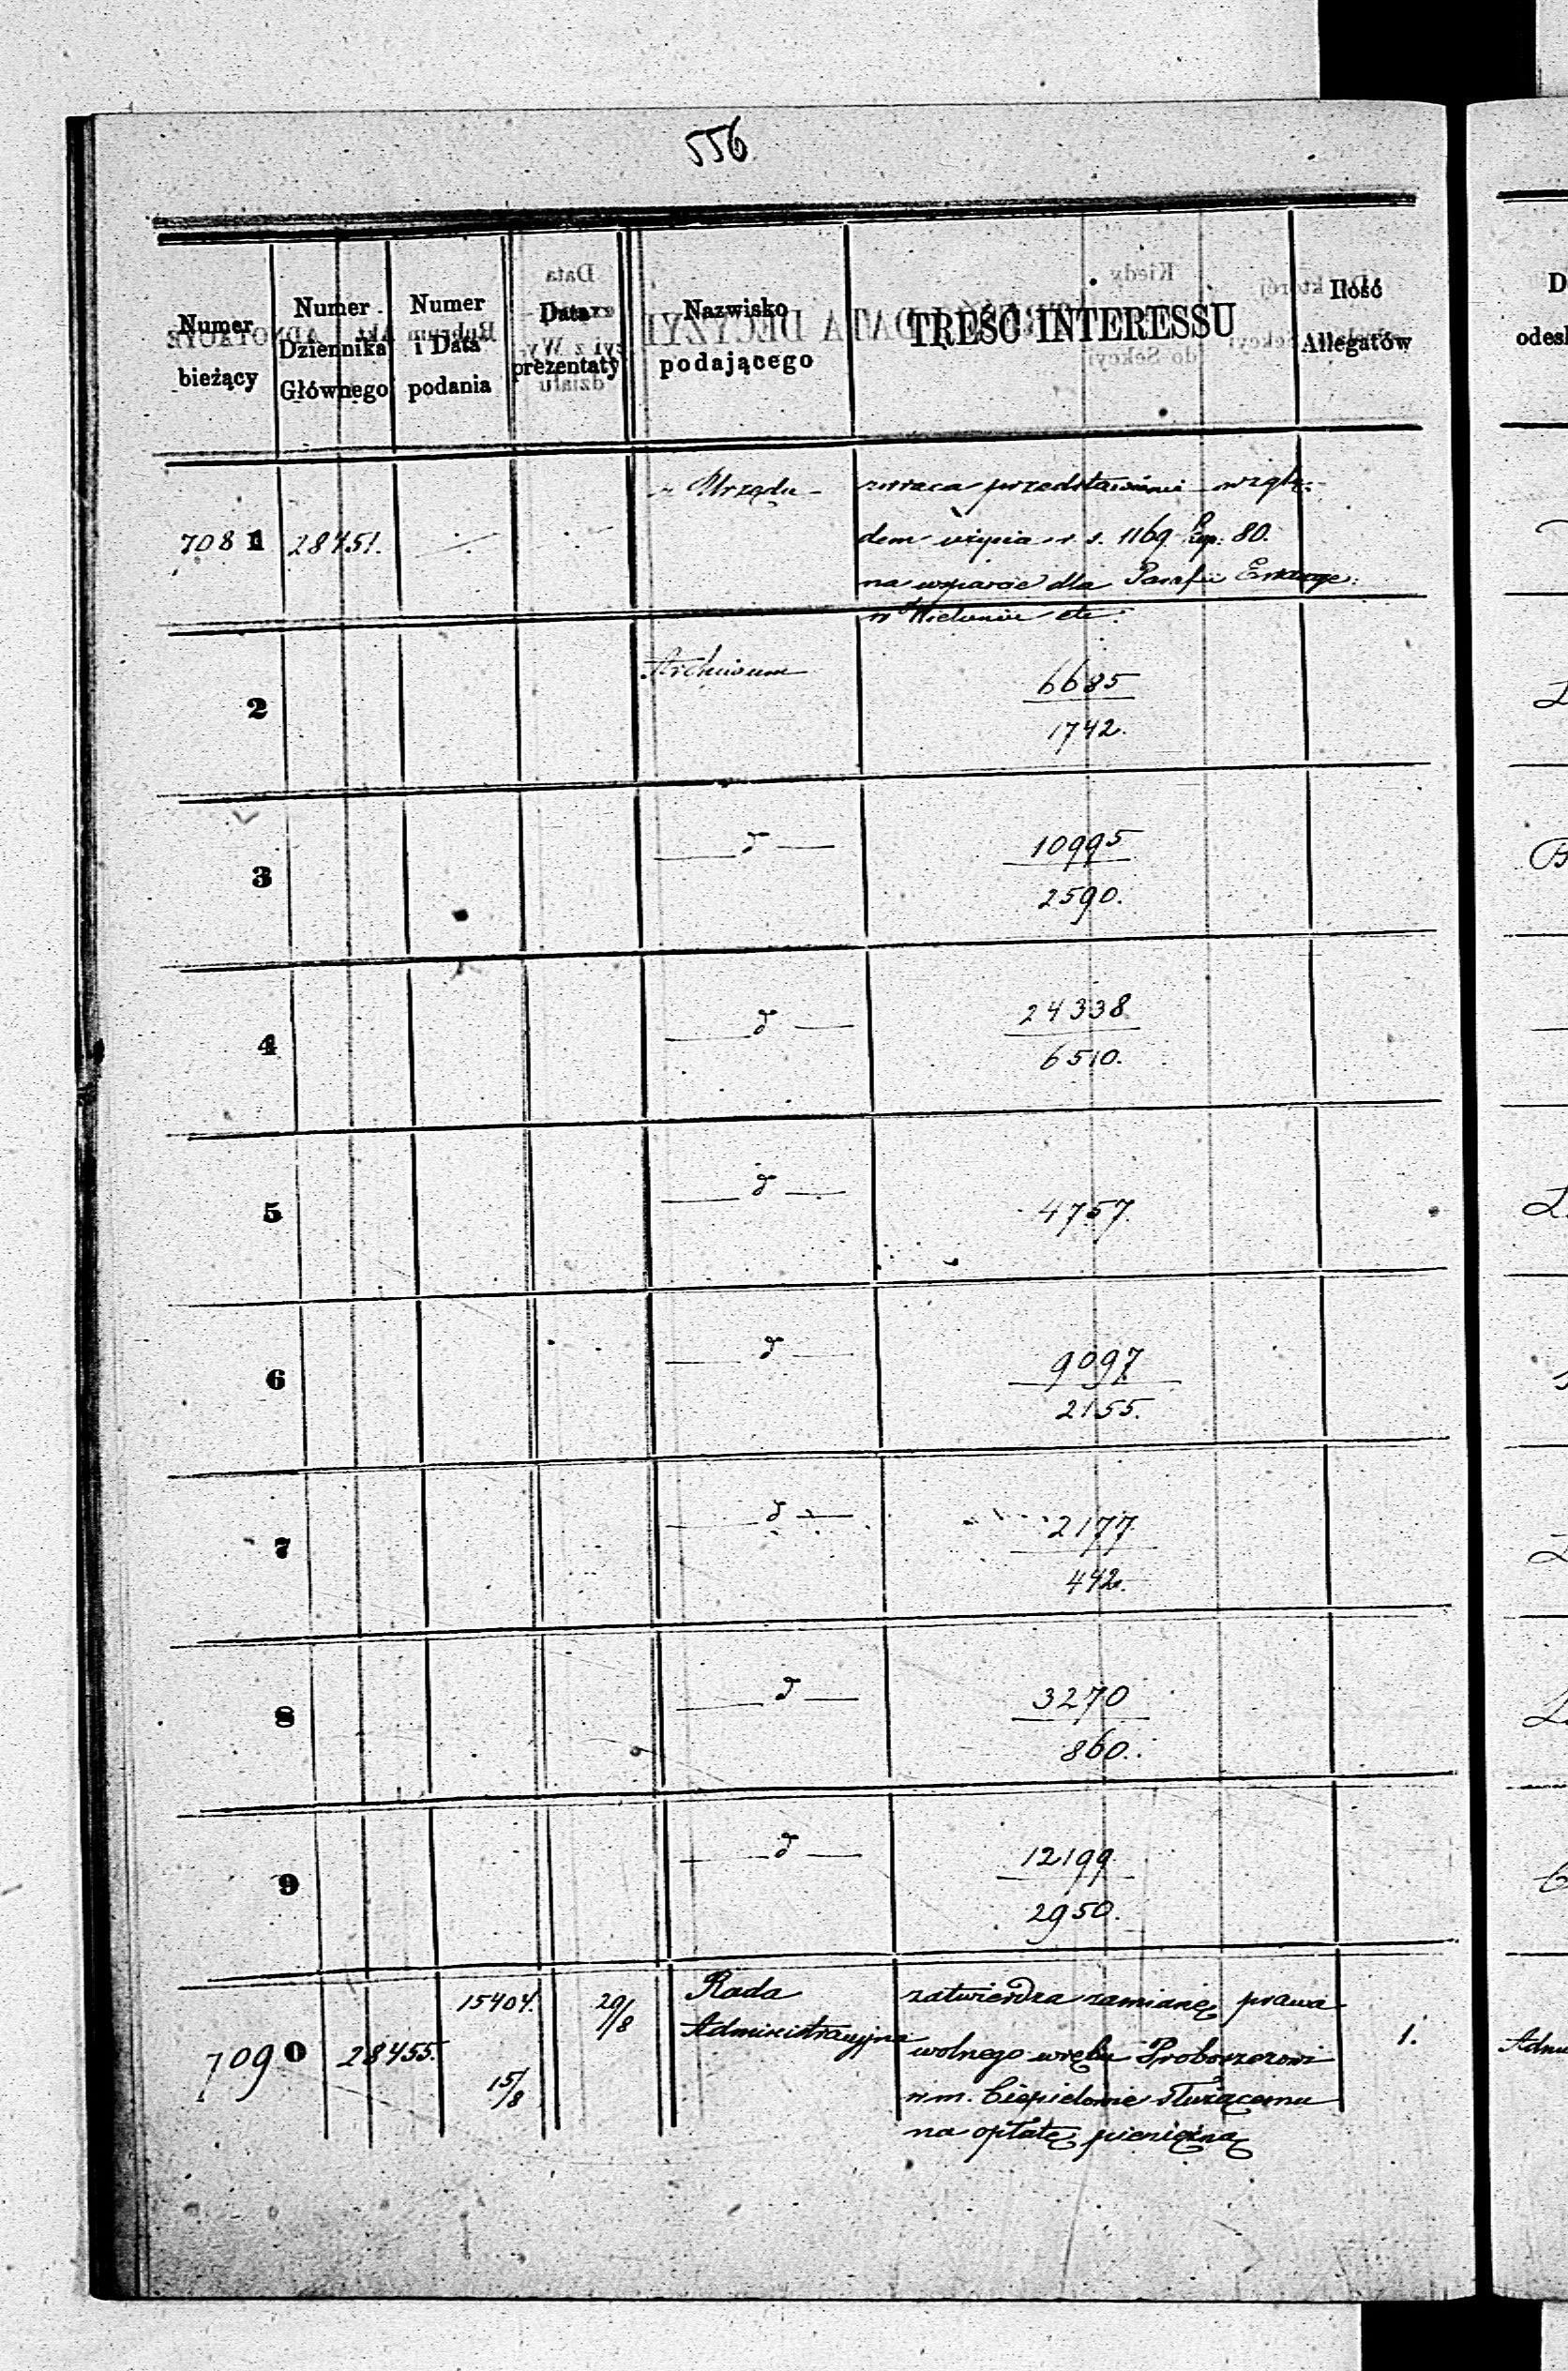 556
Numer bieżący
Numer Dziennika Głównego
Numer i Data podania
Data prezentaty
Nazwisko podającego
TREŚĆ INTERESSU
Ilość Allegatów
7081 28451. z Urzędu zwraca przedstawienie wzglę-
dem użycia r s. 1169 kop: 80.
na wsparcie dla Parafii Ewange:
w Wieluniu etc.
2 Archiwum 6685
1742.
3 d 10995
2590.
4 d 24338
6510.
5 d 4757.
6 d 9097
2155.
7 d 2177
442.
8 d 3270
860.
9 d 12199
2950.
7090 28455. 15404. 15/8 29/8 Rada Administracyjna zatwierdza zamianę prawa 1.
wolnego wrębu Proboszczowi
w m. Ciepielowie służącemu
na opłatę pieniężną